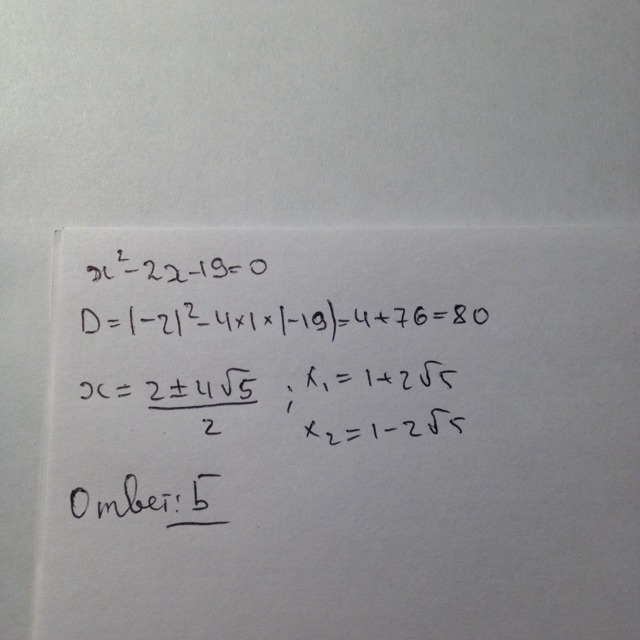 x² - 2x - 19 = 0
D = (-2)² - 4×1×(-19) = 4 + 76 = 80
x = (2 ± 4√5)/2 ; x₁ = 1 + 2√5
x₂ = 1 - 2√5
Ответ: Б